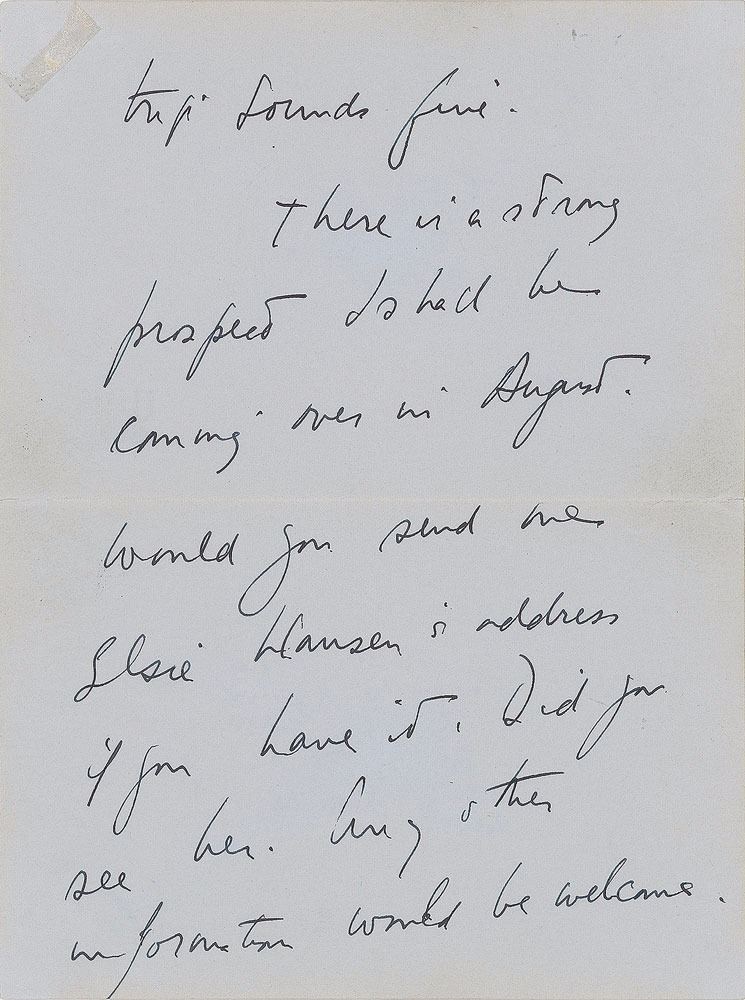 trip sounds fine.
There is a strong
prospect I shall be
coming over in August.
Would you send me
Elsie Hansen's address
if you have it. Did you
see her. Any other
information would be welcome.